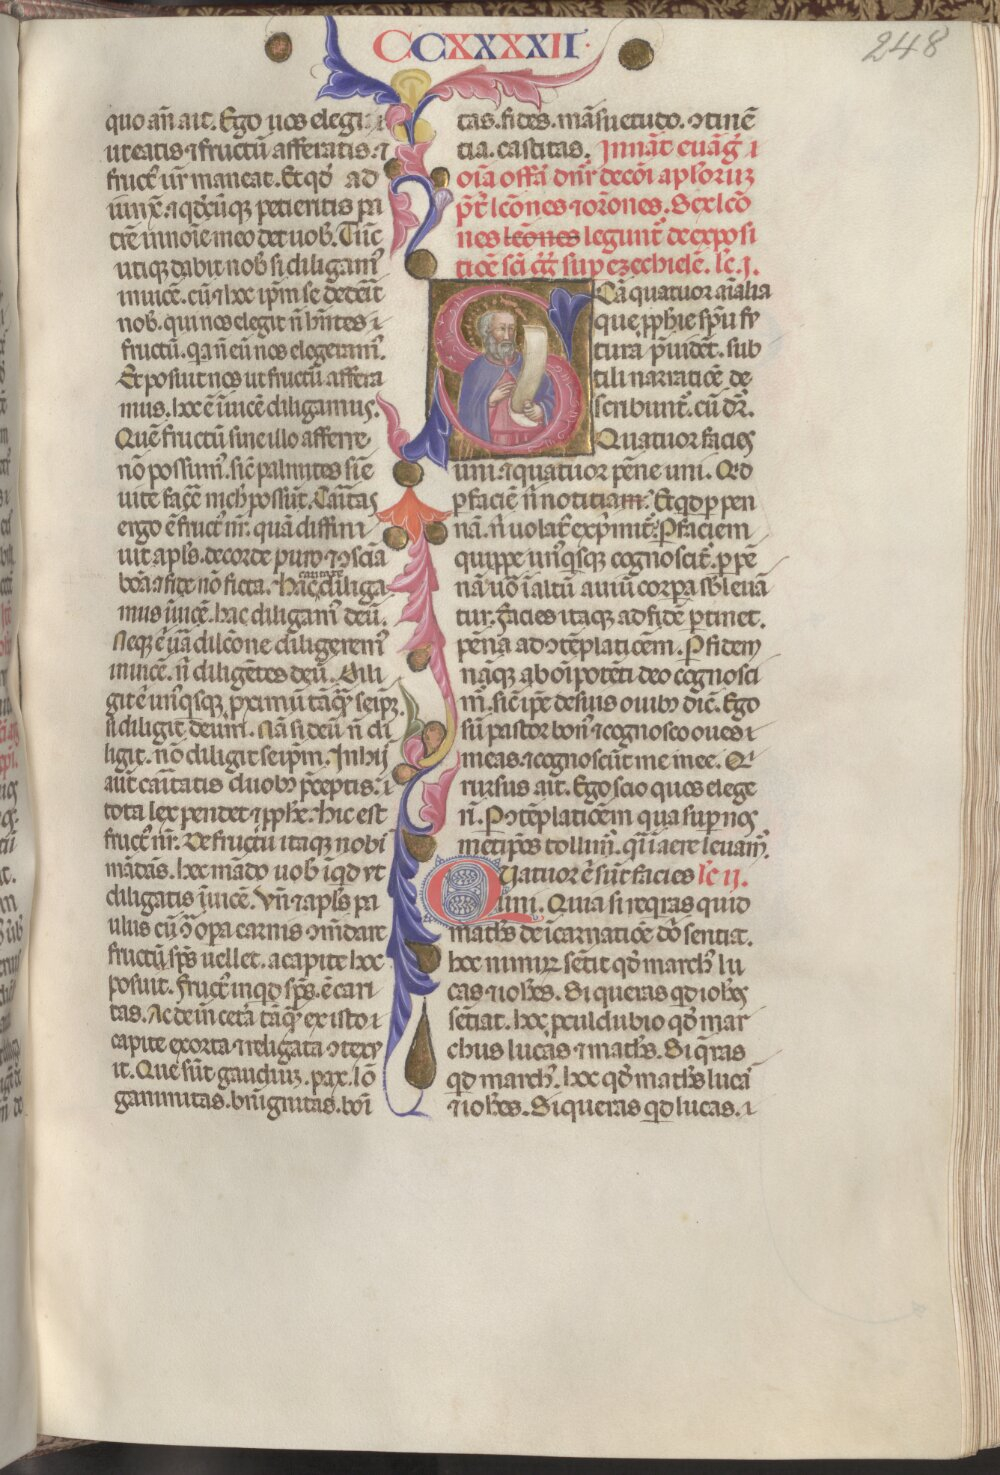 CCXXXXII
248
quo añ ait. Ego uos elegi
ut eatis ⁊ fructū afferatis. ⁊
fruct᷒ ur̄ maneat. Et qd̄
tiēe ī noīe meo det uob̄. Tūc
utiqꝫ dabit nob̄ si diligam᷒
inuicē. cū ⁊ hoc ip̄m se dederit
nob̄. qui nos elegit ñ hñtes
fructū. qa ñ eū nos elegeram᷒.
Et posuit nos ut fructū affera
mus. hoc ē īuicē diligamus.
Quē fructū sine illo afferre
nō possum᷒. sic̄ palmites sine
uite facē nich̄ possūt. Caritas
ergo ē fruct᷒ nr̄. quā diffini
uit apls̄. de corde puro ⁊ ↄsciā
bōa ⁊ fide nō ficta. Hac diliga
caritate
mus īuicē. hac diligam᷒ deū.
Neqꝫ
inuicē. ñ diligētes deū. Dili
git
si diligit deum. Nā si deū ñ di
ligit. nō diligit seip̄m. In hij
aut̄ cāitatis duob᷒ p̄ceptis.
tota lex pendet ⁊ pphē. hic est
fruct᷒ nr̄. De fructu itaqꝫ nobi
mādās. hoc mādo uob̄ īqd ut
diligatis īuicē. Vñ ⁊ apls̄ pa
ulus cū ↄ̄ opa carnis ↄmēdare
fructū sp̄s uellet. a capite hoc
posuit. Fruct᷒ inqd sp̄s. ē cari
tas. Ac dein cetā tāqꝫ ex isto
capite exorta ⁊ religata ↄtexu
it. Que sūt gaudiuꝫ. pax. lō
ganimitas. bñignitas. boī
tas. fides. māsuetudo. ↄtinē
tia. castitas. In nāt̄ euāg̃
oīa offā dn̄r de cōi apl̄oruꝫ
p̄t̄ lcōnes ⁊ orōnes. Sex lcō
nes lcōnes legunt᷒ de exposi
tiōe sc̄i gg̃ sup ezechielē. lc̄. j.
Sc̄a quatuor aīalia
que pphīe sp̄u fu
tura p̄uidēt. sub
tili narratiōe de
scribunt᷒. cū dr̄.
Quatuor facies
uni. ⁊ quatuor pēne uni. Qd
p faciē ñ notitiam. Et qd p pen
nā. ñ uolat᷒ exp̄mit᷒. P faciem
quippe un᷒qsqꝫ cognoscit᷒. p pē
nā uō ī altū auiū corpa sb̄leuā
tur. Facies itaqꝫ ad fidē ptinet.
pēna ad ↄtēplatiōem. P fidem
nāqꝫ ab oīpotēti deo cognosci
m᷒. sic̄ ipē de suis ouib᷒ dic̄. Ego
sū pastor bon᷒ ⁊ cognosco oues
meas. ⁊ cognoscūt me mee. Qi
rursus ait. Ego scio quos elege
rī. P ↄtēplatiōem qua sup nos
metip̄os tollim᷒. qi ī aere leuam᷒.
Quatuor ḡ sūt facies lc̄ ij.
uni. Quia si reqras quid
math̄s de īcarnatiōe dō sentiat.
hoc nimiꝝ sētit qd march᷒ lu
cas ⁊ ioh̄es. Si queras qd ioh̄es
sētiat. hoc pculdubio qd mar
chus lucas ⁊ math̄s. Si qras
qd march᷒. hoc qd math̄s lucas
⁊ ioh̄es. Si queras qd lucas.